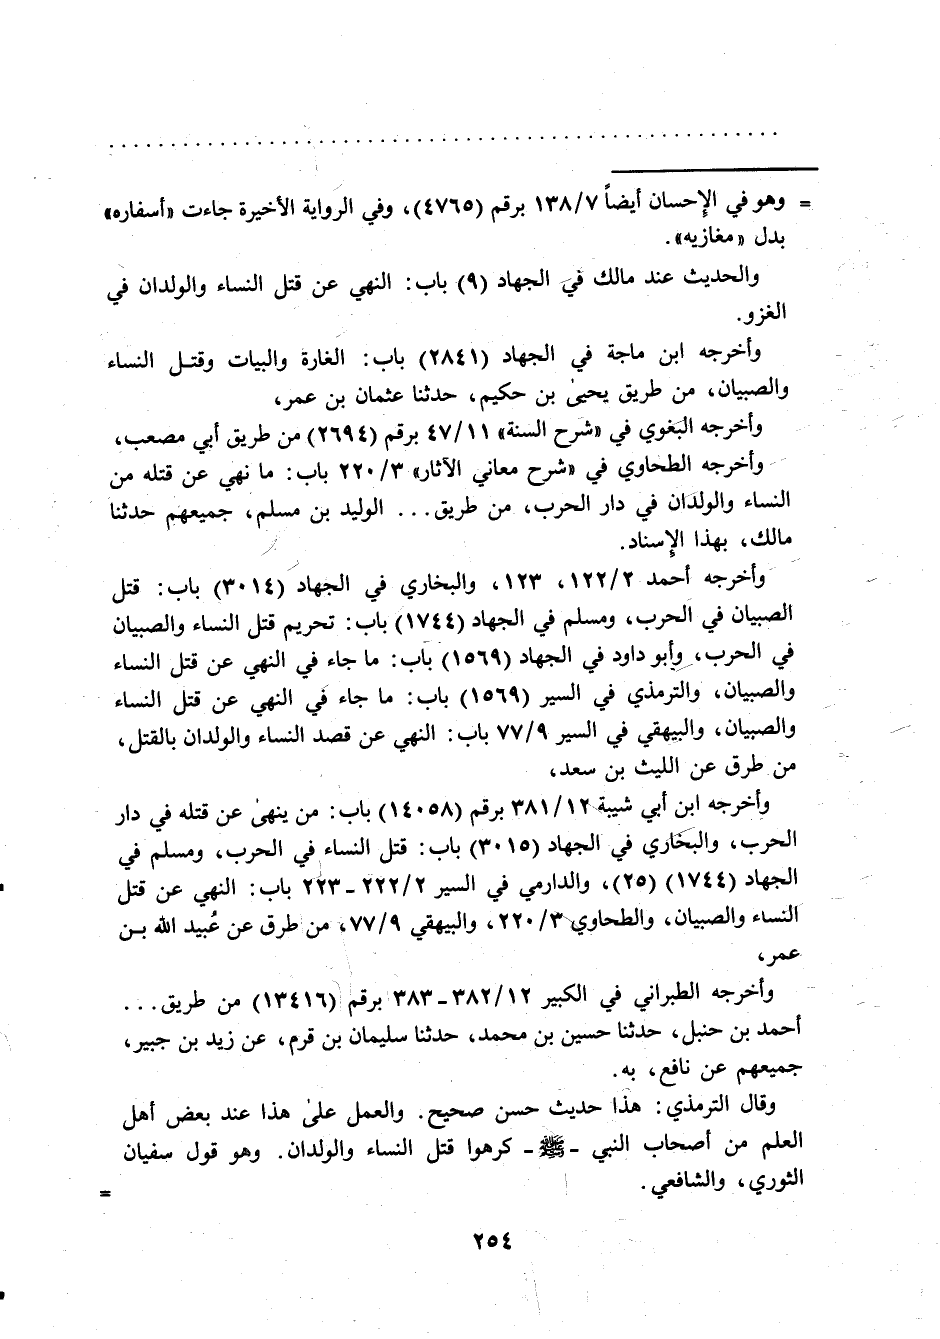 = وهو في الإحسان أيضاً ١٣٨/٧ برقم (٤٧٦٥)، وفي الرواية الأخيرة جاءت «أسفاره»
بدل «مغازيه».
والحديث عند مالك في الجهاد (٩) باب: النهي عن قتل النساء والولدان في
الغزو.
وأخرجه ابن ماجة في الجهاد (٢٨٤١) باب: الغارة والبيات وقتل النساء
والصبيان، من طريق يحيىٰ بن حكيم، حدثنا عثمان بن عمر،
وأخرجه البغوي في «شرح السنة» ٤٧/١١ برقم (٢٦٩٤) من طريق أبي مصعب،
وأخرجه الطحاوي في «شرح معاني الآثار» ٢٢٠/٣ باب: ما نهي عن قتله من
النساء والولدان في دار الحرب، من طريق... الوليد بن مسلم، جميعهم حدثنا
مالك، بهذا الإسناد.
وأخرجه أحمد ١٢٢/٢، ١٢٣، والبخاري في الجهاد (٣٠١٤) باب: قتل
الصبيان في الحرب، ومسلم في الجهاد (١٧٤٤) باب: تحريم قتل النساء والصبيان
في الحرب، وأبو داود في الجهاد (١٥٦٩) باب: ما جاء في النهي عن قتل النساء
والصبيان، والترمذي في السير (١٥٦٩) باب: ما جاء في النهي عن قتل النساء
والصبيان، والبيهقي في السير ٧٧/٩ باب: النهي عن قصد النساء والولدان بالقتل،
من طرق عن الليث بن سعد،
وأخرجه ابن أبي شيبة ٣٨١/١٢ برقم (١٤٠٥٨) باب: من ينهىٰ عن قتله في دار
الحرب، والبخاري في الجهاد (٣٠١٥) باب: قتل النساء في الحرب، ومسلم في
الجهاد (١٧٤٤) (٢٥)، والدارمي في السير ٢٢٢/٢ - ٢٢٣ باب: النهي عن قتل
النساء والصبيان، والطحاوي ٢٢٠/٣، والبيهقي ٧٧/٩، من طرق عن عُبيد الله بن
عمر،
وأخرجه الطبراني في الكبير ٣٨٢/١٢ - ٣٨٣ برقم (١٣٤١٦) من طريق...
أحمد بن حنبل، حدثنا حسين بن محمد، حدثنا سليمان بن قرم، عن زيد بن جبير،
جميعهم عن نافع، به.
وقال الترمذي: هذا حديث حسن صحيح. والعمل علىٰ هذا عند بعض أهل
العلم من أصحاب النبي - ﷺ - كرهوا قتل النساء والولدان. وهو قول سفيان
الثوري، والشافعي.
=
٢٥٤